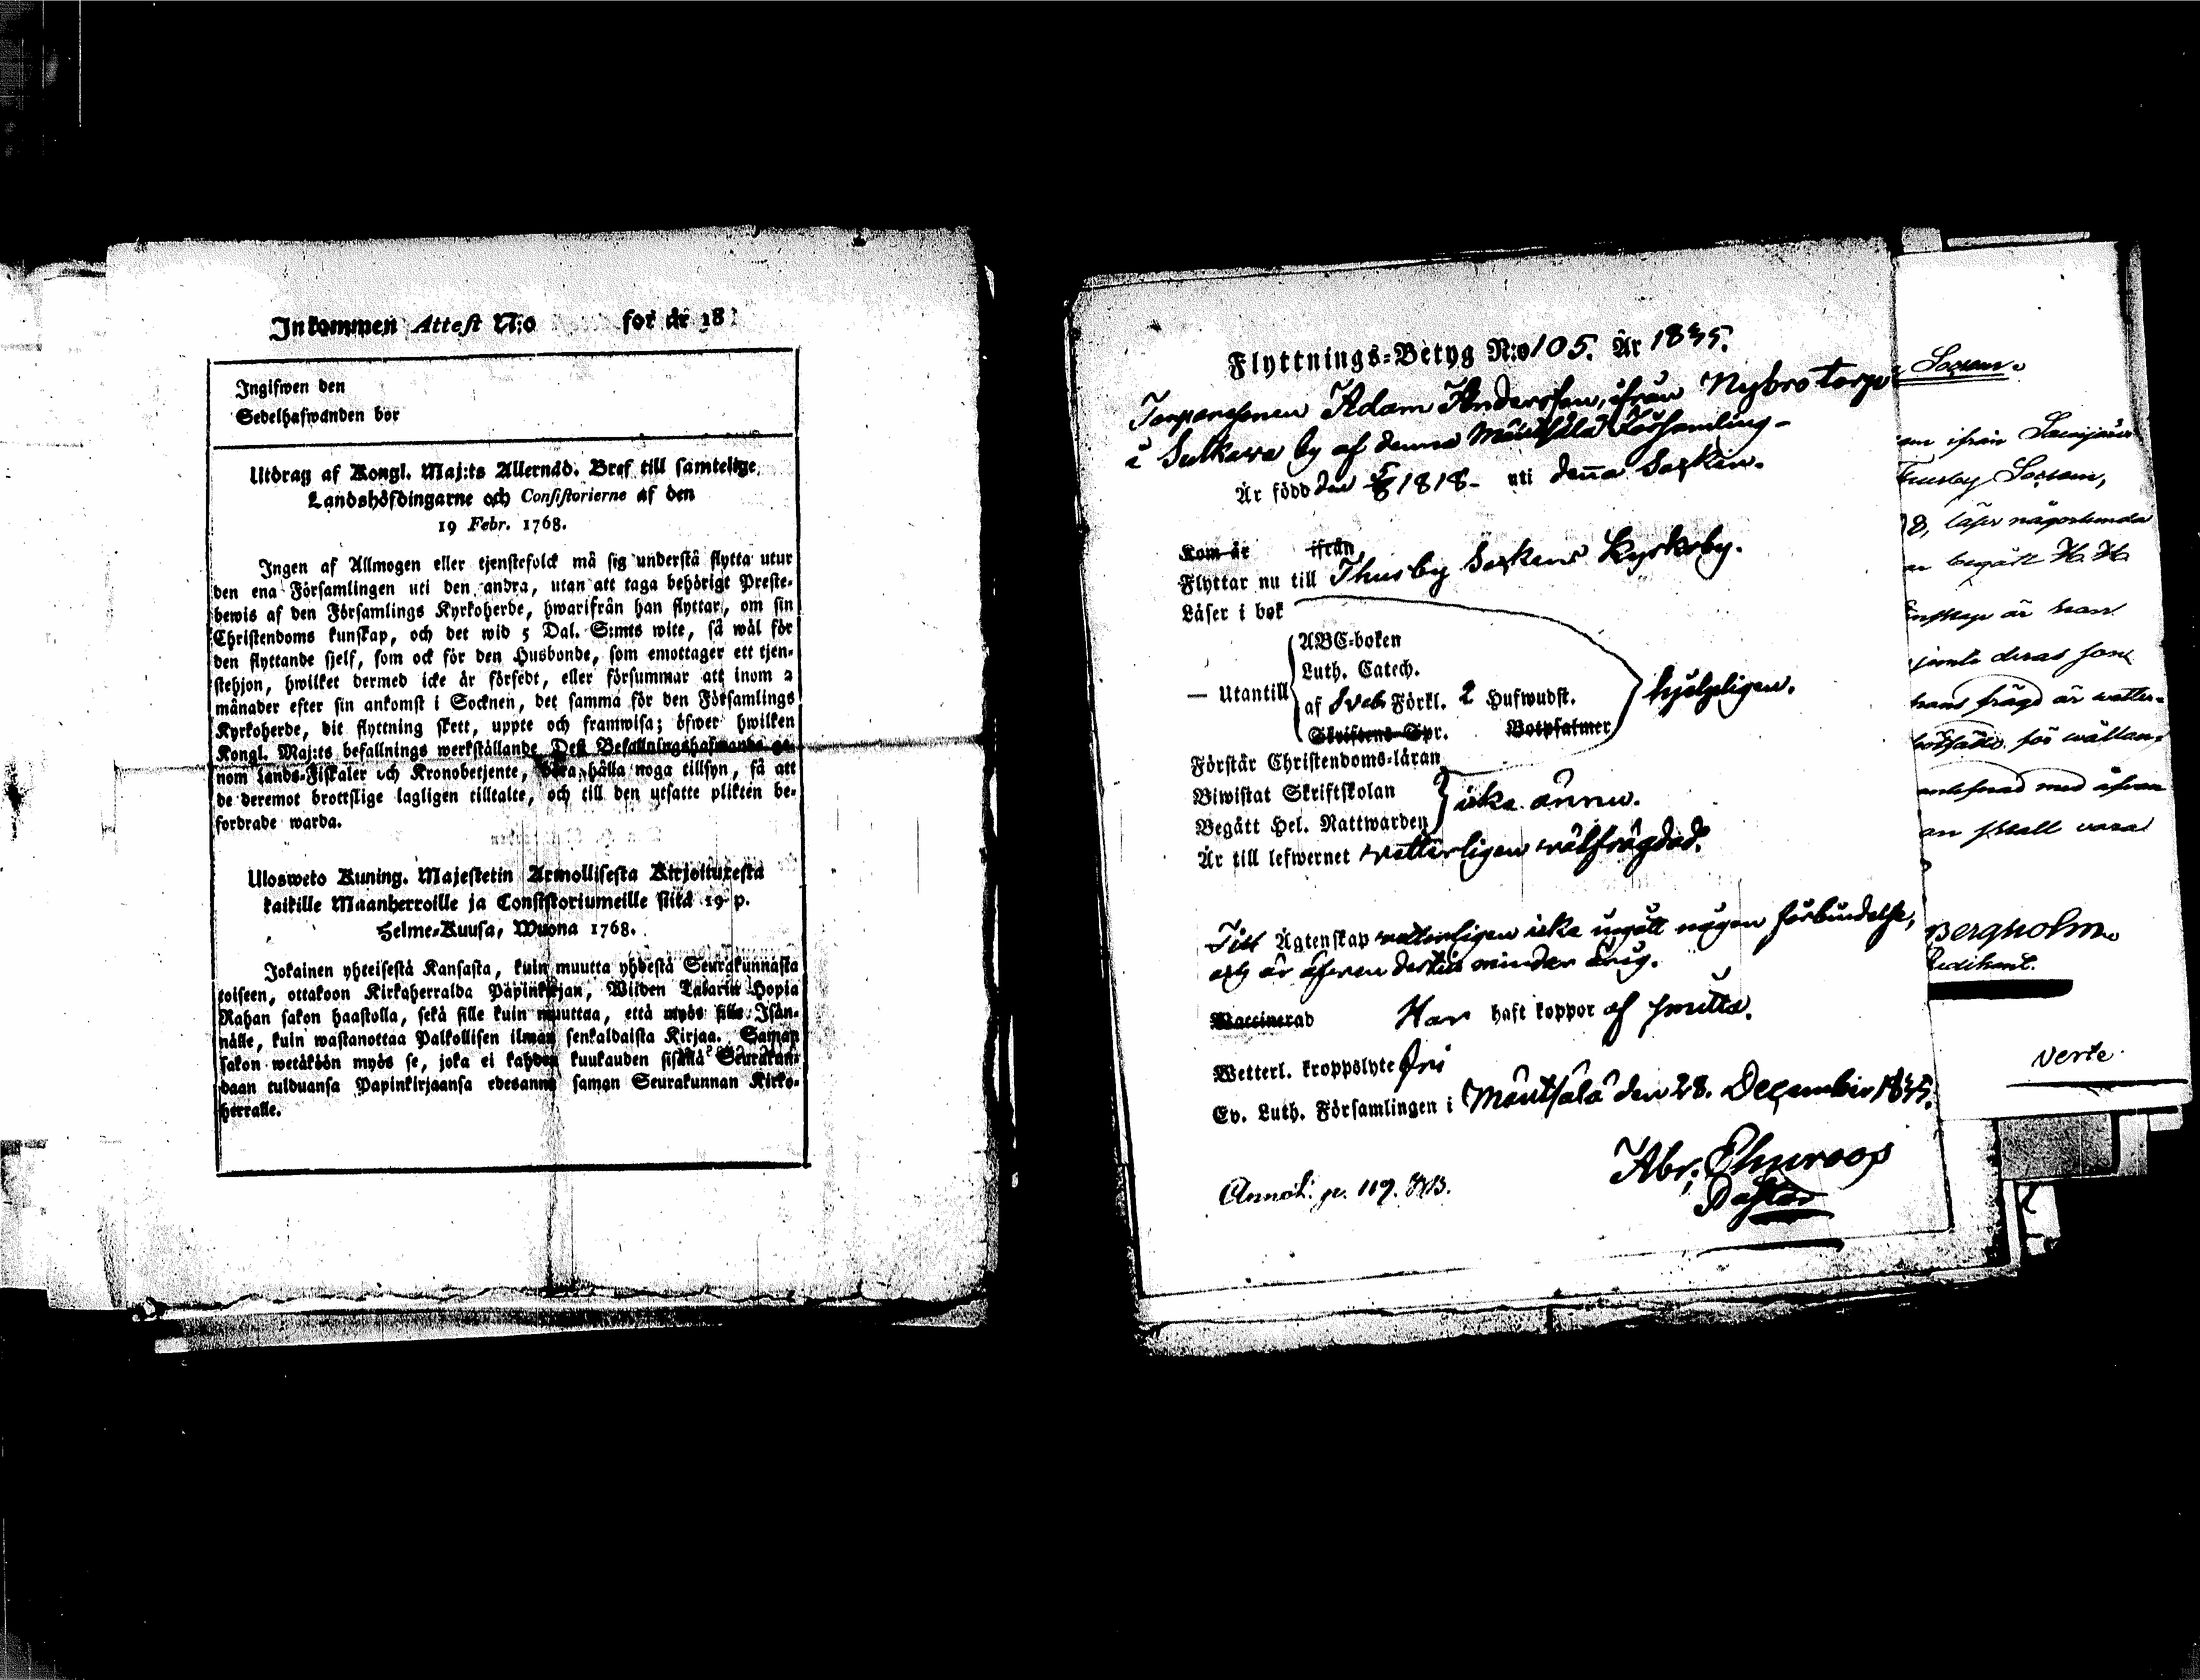 Inkommen Attest N:o for år 18
Ingifwen den
Sedelhafwanden bor
Utdrag af Kongl. Maj:ts Allernåd. Bref till samtelige
Landshöfdingarne och Consistorierne af den
19 Febr. 1768.
Ingen af Allmogen eller tjenstefolck må sig understå flytta utur
den ena Församlingen uti den andra, utan att taga behörigt Preste-
bewis af den Församlings Kyrkoherde, hwarifrån han flyttar, om sin
Christendoms kunskap, och det wid 5 Dal. S:mts wite, så wäl för
den flyttande sjelf, som ock för den Husbonde, som emottager ett tjen-
stehjon, hwilket dermed icke är försedt, eller försummar att inom 2
månader efter sin ankomst i Socknen, det samma för den Församlings
Kyrkoherde, dit flyttning skett, uppte och framwisa; öfwer hwilken
Kongl. Maj:ts befallnings werkställande Dess Befallningshafwande ge-
nom Lands-Fiskaler och Kronobetjente, böra hålla noga tillsyn, så att
de deremot brottslige lagligen tilltalte, och till den utsatte plikten be-
fordrade warda.
Ulosweto Kuning. Majestetin Armollisesta Kirjoituxesta
kaikille Maanherroille ja Consistoriumeille siitä 19 p.
Helme-Kuusa, Wuona 1768.
Jokainen yhteisestä Kansasta, kuin muutta yhdestä Seurakunnasta
toiseen, ottakoon Kirkoherralda Papinkirjan, Wiiden Talarin Hopia
Rahan sakon haastolla, sekä sille kuin muuttaa, että myös sille Isän-
nälle, kuin wastanottaa Palkollisen ilman senkaldaista Kirjaa. Saman
sakon wetäköön myös se, joka ei kahden kuukauden sisällä Seurakun-
daan tulduansa Papinkirjaansa edesanna saman Seurakunnan Kirko-
herralle.
Flyttnings-Betyg N:o 105. År 1835.
Torparesonen Adam Andersson, ifrån Nybro torp
i Sulkava by af denna Mäntsälä Församling-
År född den 5/8 1818- uti denna Socken.
Kom år ifrån
Flyttar nu till Thusby Sockens Kyrkoby.
Läser i bok
ABC-boken
Luth. Catech.
— Utantill af Sveb. Förkl. 2 Hufwudst. hjelpligen.
Skriftens Spr. Botpsalmer
Förstår Christendoms-läran
Biwistat Skriftskolan
Begått Hel. Nattwarden icke ännu.
Är till lefwernet vetterligen välfrägdad.
Till Ägtenskap vetterligen icke ingått någon förbindelse,
och är äfven dertill minder årig.
Vaccinerad Har haft koppor af smitta.
Wetterl. kroppslyte fri
Ev. Luth. Församlingen i Mäntsälä den 28. December 1835.
Abr. Ehnroos
Pastor
Annot. p. 119. KB.
Socken.
ifrån
Thusby Socken,
läser någorlunda
begått H. H.
är han
jemte deras son
hans frägd är vetter-
med äfven
an skall vara
Bergholm
Predikant.
verte